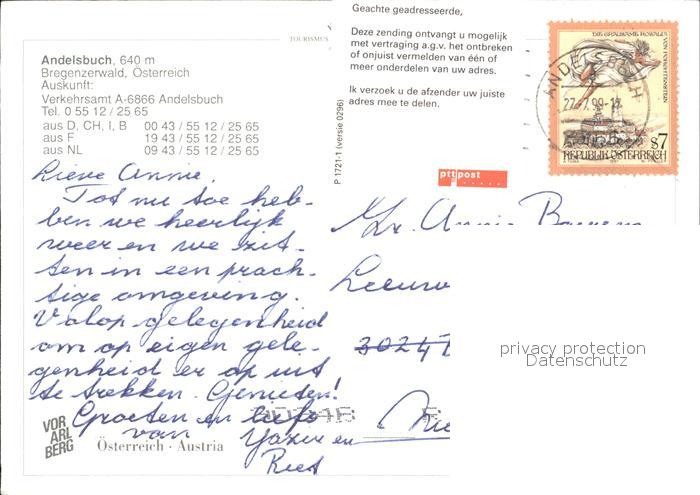 TOURISMUS
Andelsbuch, 640 m
Bregenzerwald, Österreich
Auskunft:
Verkehrsamt A-6866 Andelsbuch
Tel. 0 55 12 / 25 65
aus D, CH, I, B 00 43 / 55 12 / 25 65
aus F 19 43 / 55 12 / 25 65
aus NL 09 43 / 55 12 / 25 65
Lieve Annie.
Tot nu toe heb-
ben we heerlijk
weer en we zit-
ten in een prach-
tige omgeving.
Volop gelegenheid
om op eigen gele-
genheid er op uit
te trekken. Genieten!
Groeten en liefs
van en
VOR
ARL
BERG
Österreich · Austria
Geachte geadresseerde,
Deze zending ontvangt u mogelijk
met vertraging a.g.v. het ontbreken
of onjuist vermelden van één of
meer onderdelen van uw adres.
Ik verzoek u de afzender uw juiste
adres mee te delen.
P 1721-1 (versie 0296)
ptt post
DIE GRAUSAME ROSALIA
VON FORCHTENSTEIN
ANDELSBUCH
27.7.99-17
s7
REPUBLIK ÖSTERREICH
Annie
Leeuw
3024
privacy protection
Datenschutz